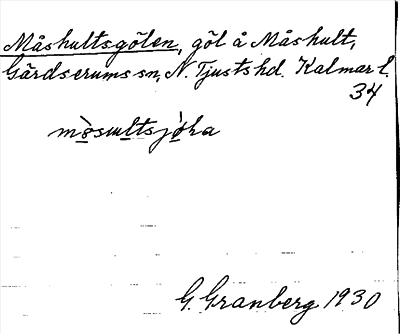 Måshultsgölen, göl å Måshult,
Gärdserums sn, N. Tjusts hd. Kalmar l.
34
mòsultsjò̤ka
G. Granberg 1930